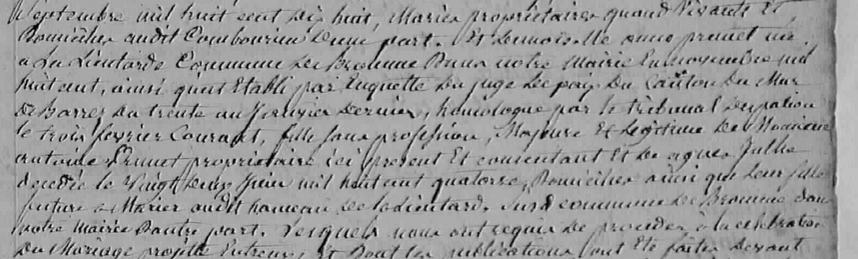 Septembre mil huit cent dix huit, Mariés propriétaires quand vivants Et
Domiciliés audit Combourieu D'une part. Et Demoiselle anne prunet née
a La Lieutarde Commune de Bromme Dans notre Mairie En novembre mil
huit cent, ainsi qu'est Etabli par Enquette du juge de paix Du Canton Du Mur
De Barrez Du trente un Janvier Dernier, homologué par le tribunal
le trois fevrier Courant, fille sans profession, Majeure Et Légitime De
antoine Prunet propriétaire ici present Et consentant Et de agnes Julhe
decedée le Vingt deux mil huit cent quatorze, Domiciliés ainsi que leur fille
future a Marier audit hameau de Commune de Bromme dans
notre Mairie D'autre part. Lesquels nous ont requis De proceder à la celebration
Du Mariage projetté Entreux, Et Dont les publications ont Eté faites Devant